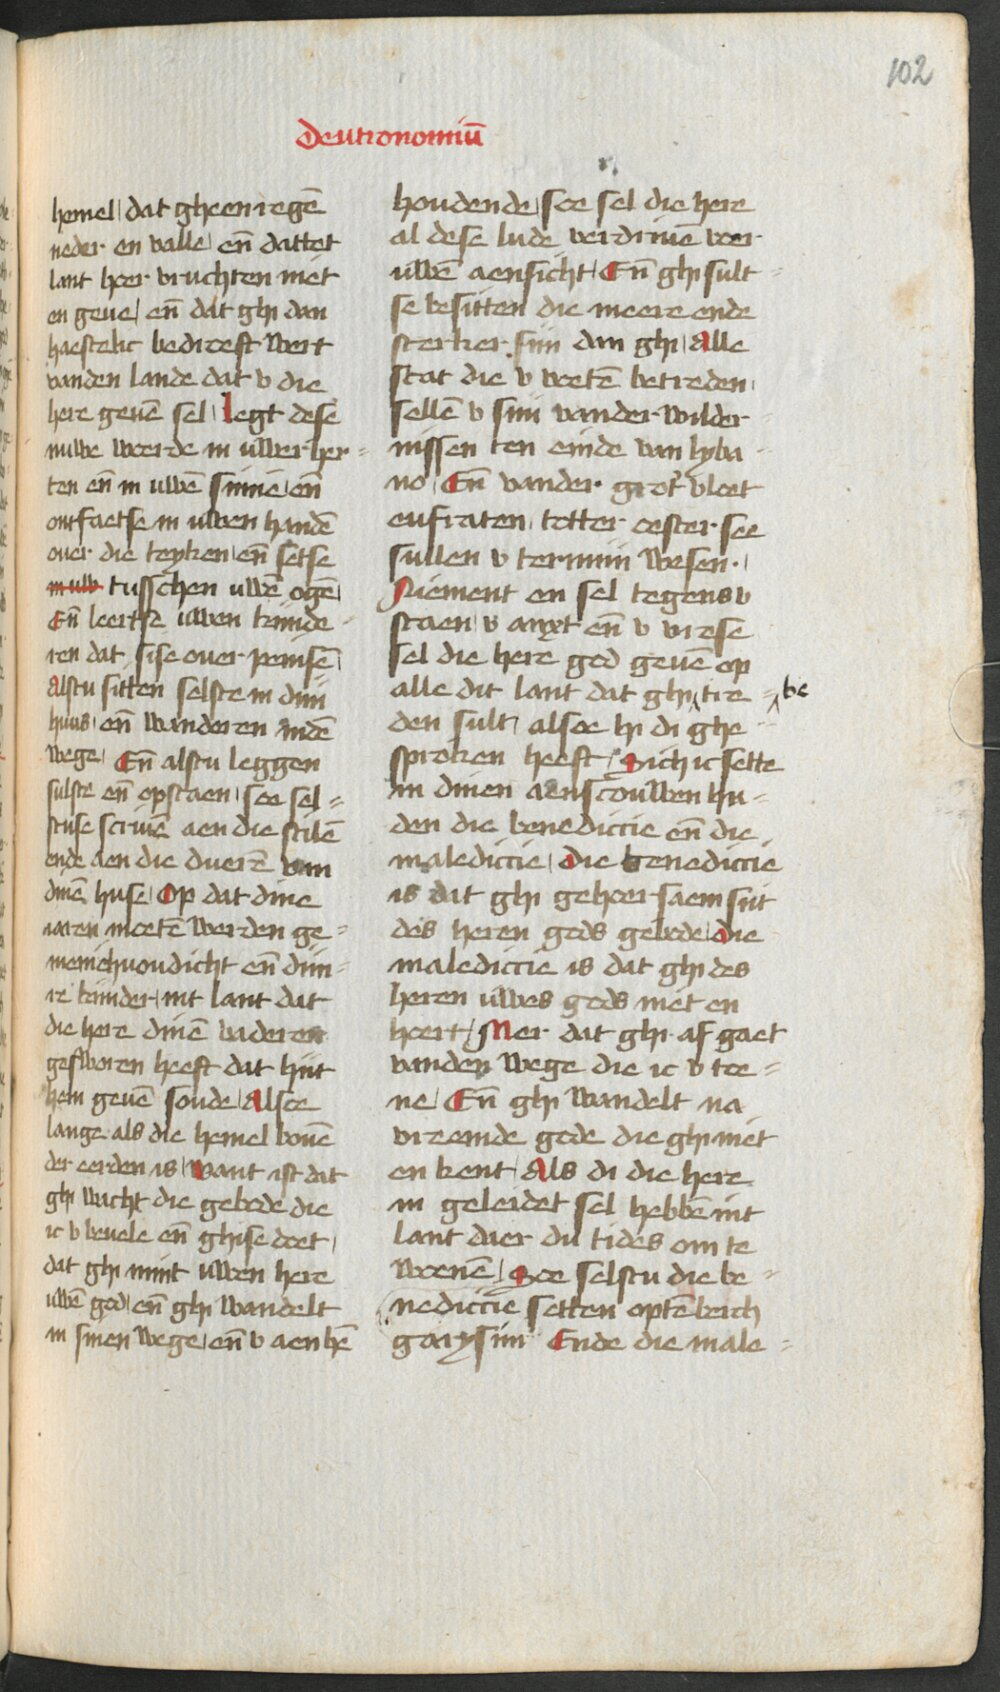 102
Deutronomiū
hemel dat gheen regē
neder en valle en̄ dattet
lant heer vruchten niet
en geue en̄ dat ghi dan
haestelic bedreft wert
vanden lande dat v die
here geuē sel legt dese
mijne weerde in uwer her=
ten en̄ in uwē sinne en̄
ontfaetse in uwen handē
ouer die teyken en̄ setse
in uw tusschen uwē ogē
En̄ leertse uwen kinde=
ren dat sise ouer peinsē
Alstu sitten selste in dijn
huus en̄ wanderen inde
wege En̄ alstu leggen
sulste en̄ opstaen soe sel=
stuse scriuē aen die stilē
ende aen die duerē van
dinē huse Op dat dine
iaren moetē werden ge=
menichuoudicht en̄ dijn=
re kinder int lant dat
die here dinē vaderen
gesworen heeft dat hijt
hem geuē soude Alsoe
lange als die hemel bouē
der eerden is want ist dat
ghi wacht die gebode die
ic v beuele en̄ ghise doet
dat ghi mint uwen here
uwē god en̄ ghi wandelt
in sinen wege en̄ v aen hē
houdende soe sel die here
al dese lude verdriuē voer
uwē aensicht En̄ ghi sult=
se besitten die meere ende
sterker sijn dan ghi Alle
stat die v voetē betreden
sellē v sijn vander wilder=
nissen ten einde van lyba=
no En̄ vander grot vloet
eufraten totter oester see
sullen v termijn wesen
Niement en sel tegens v
staen v anxt en̄ v vrese
sel die here god geuē op
alle dit lant dat ghi tre= be
den sult alsoe hi di ghe=
sproken heeft Sich ic sette
in dinen aenscouwen hu=
den die benedictie en̄ die
maledictie Die benedictie
is dat ghi gehoersaem sijt
des heren gods gebode Die
maledictie is dat ghi des
heren uwes gods niet en
hoert Mer dat ghi af gaet
vanden wege die ic v toe=
ne En̄ ghi wandelt na
vreemde gode die ghi niet
en kent Als di die here
in geleidet sel hebbē int
lant daer du tides om te
woenē Soe selstu die be=
nedictie setten optē berch
garysim Ende die male=